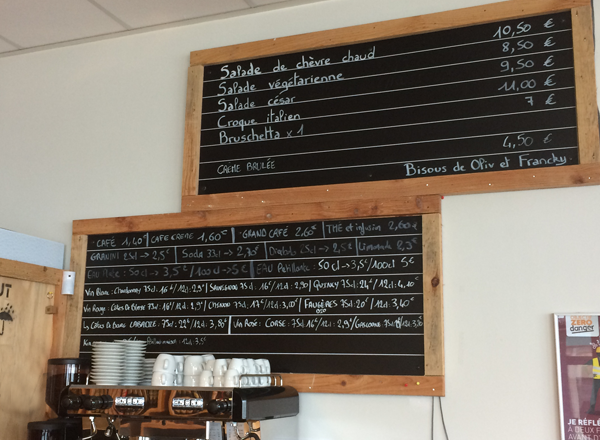 Salade de chèvre chaud 10,50 €
Salade végétarienne 8,50 €
Salade césar 9,50 €
Croque italien 11,00 €
Bruschetta x 1 7 €
CREME BRULÉE 4,50 €
Bisous de Oliv et Francky
CAFÉ 1,40€ CAFE CREME 1,60€ GRAND CAFÉ 2,60€ THÉ et infusion 2,60
GRANINI 25cl → 2,5€ Soda 33cl → 2,30€ 25cl → 2,5€ Limonade 2,3€
EAU Plate : 50cl → 3,5€ / 100cl → 5€ EAU Pétillante : 50cl → 3,5/100cl 5€
Vin Blanc : Chardonnay 75cl : 16€/12cl : 2,90 SAUVIGNON 75cl : 16€/12cl : 2,90 QUINCY 75cl : 24€/12cl : 4,10
Vin Rouge : Côtes 75cl : 16€/12cl : 2,9€ 75cl : 17€/12cl : 3,10€ FAUGÈRES 75cl : 20€/12cl : 3,40€
Côtes LABASTIDE 75cl : 22€/12cl : 3,80€ Vin Rosé : CORSE : 75cl : 16€/12cl : 2,9€ GASCOGNE 75cl
12cl : 3,5€
UT
ZERO
danger
JE RÉFLÉ
À DEUX F
AVANT D